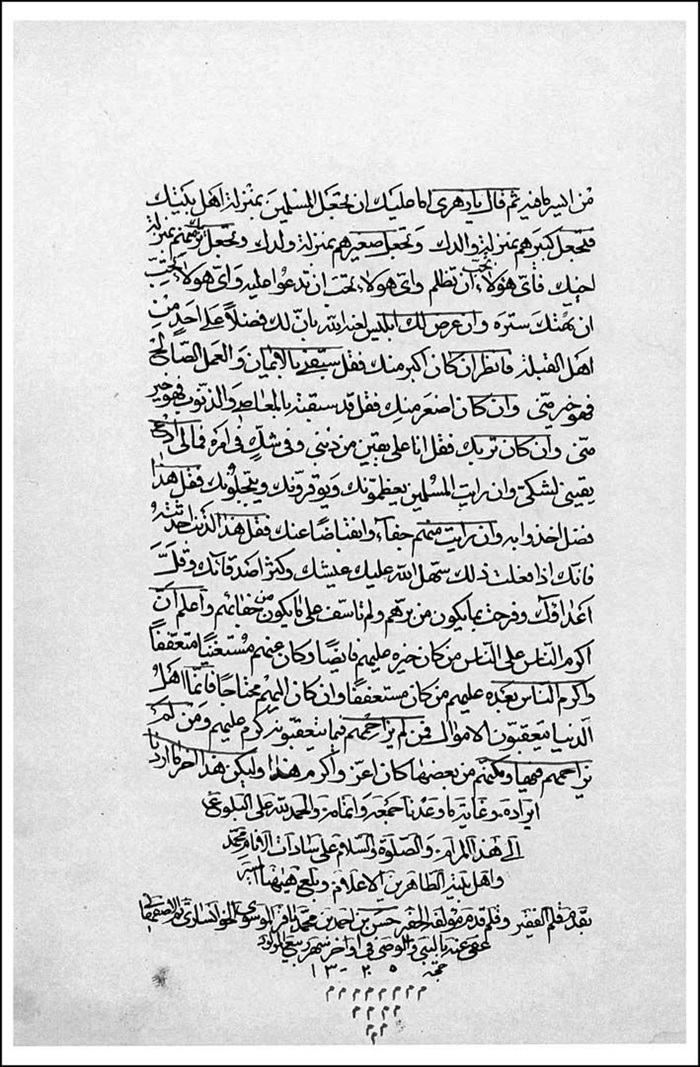 من اسیره ثم قال یا زهری اما علیک ان تجعل المسلمین بمنزلة اهل بیتک
فتجعل کبیرهم بمنزلة والدک وتجعل صغیرهم بمنزلة ولدک وتجعل تربک منهم بمنزلة
اخیک فای هؤلاء تحب ان تظلم وای هولاء تحب ان تدعوا علیه وای هولاء تحب
ان تهتک ستره وان عرض لک ابلیس لعنه الله بان لک فضلاً علی احد من
اهل القبلة فانظر ان کان اکبر منک فقل سبقنی بالایمان والعمل الصالح
فهو خیر منی وان کان اصغر منک فقل قد سبقته بالمعاصی والذنوب فهو خیر
منی وان کان تربک فقل انا علی یقین من ذنبی وفی شک فی امره فمالی ادع
یقینی لشکی وان رایت المسلمین یعظمونک ویوقرونک ویبجلونک فقل هذا
فضل اخذوا به وان رایت منهم جفاء وانقباضاً عنک فقل هذا الذنب احدثته
فانک اذا فعلت ذلک سهل الله علیک عیشک وکثر اصدقائک وقلّ
اعدائک وفرحت بما یکون من برهم ولم تاسف علی ما یکون من جفائهم واعلم ان
اکرم الناس علی الناس من کان خیره علیهم فایضاً وکان عنهم مستغنیاً متعففاً
واکرم الناس بعده علیهم من کان مستعففاً وان کان الیهم محتاجاً فانما اهل
الدنیا یتعقبون الاموال فمن لم یزاحمهم فیما یتعقبونه کرم علیهم ومن لم
یزاحمهم فیها ومکنهم من بعضها کان اعز واکرم هذا ولیکن هذا اخر ما اردنا
ایراده وغایة ما وعدنا جمعه واتمامه والحمد لله علی البلوغ
الی هذا المرام والصلوة والسلام علی سادات الانام محمد
واهل بیته الطاهرین الاعلام وبلغ هیهنا
بقلم الفقیر وقلم قدم مؤلفه الحقیر حسن بن احمد بن محمد باقر الموسوی الخوانساری ثم الاصفهانی
عفی عنه بالنبی والوصی فی اواخر شهر ربیع المولود
م م م م م م م م
م م م م
م م
م